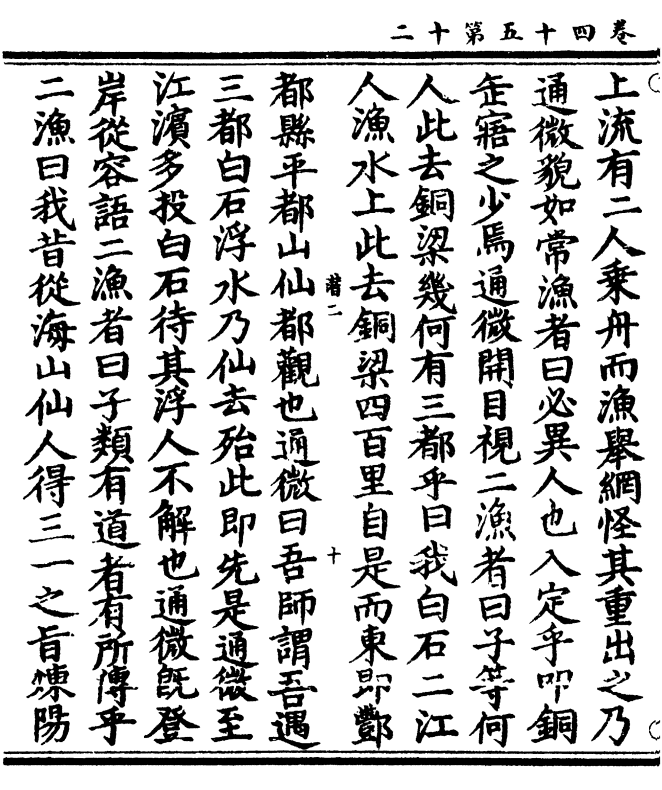 卷四十五第十二
上流有二人乘舟而漁舉網怪其重出之乃
通微貌如常漁者曰必異人也入定乎叩銅
缶寤之少焉通微開目視二漁者曰子等何
人此去銅梁幾何有三都乎曰我白石二江
人漁水上此去銅梁四百里自是而東即酆
都縣平都山仙都觀也通微曰吾師謂吾遇
三都白石浮水乃仙去殆此即先是通微至
江濱多投白石待其浮人不解也通微既登
岸從容語二漁者曰子類有道者有所傳乎
二漁曰我昔從海山仙人得三一之旨煉陽
十